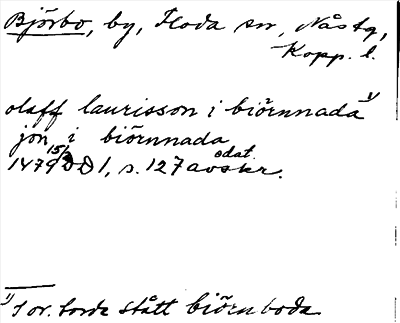 Björbo, by, Floda sn, Nås tg,
Kopp. l.
olaff laurisson i biörnnada 1)
jon i biörnnada
1479 15/2 DD 1, s. 127 avskr. odat.
1) I or. torde stått biörnboda